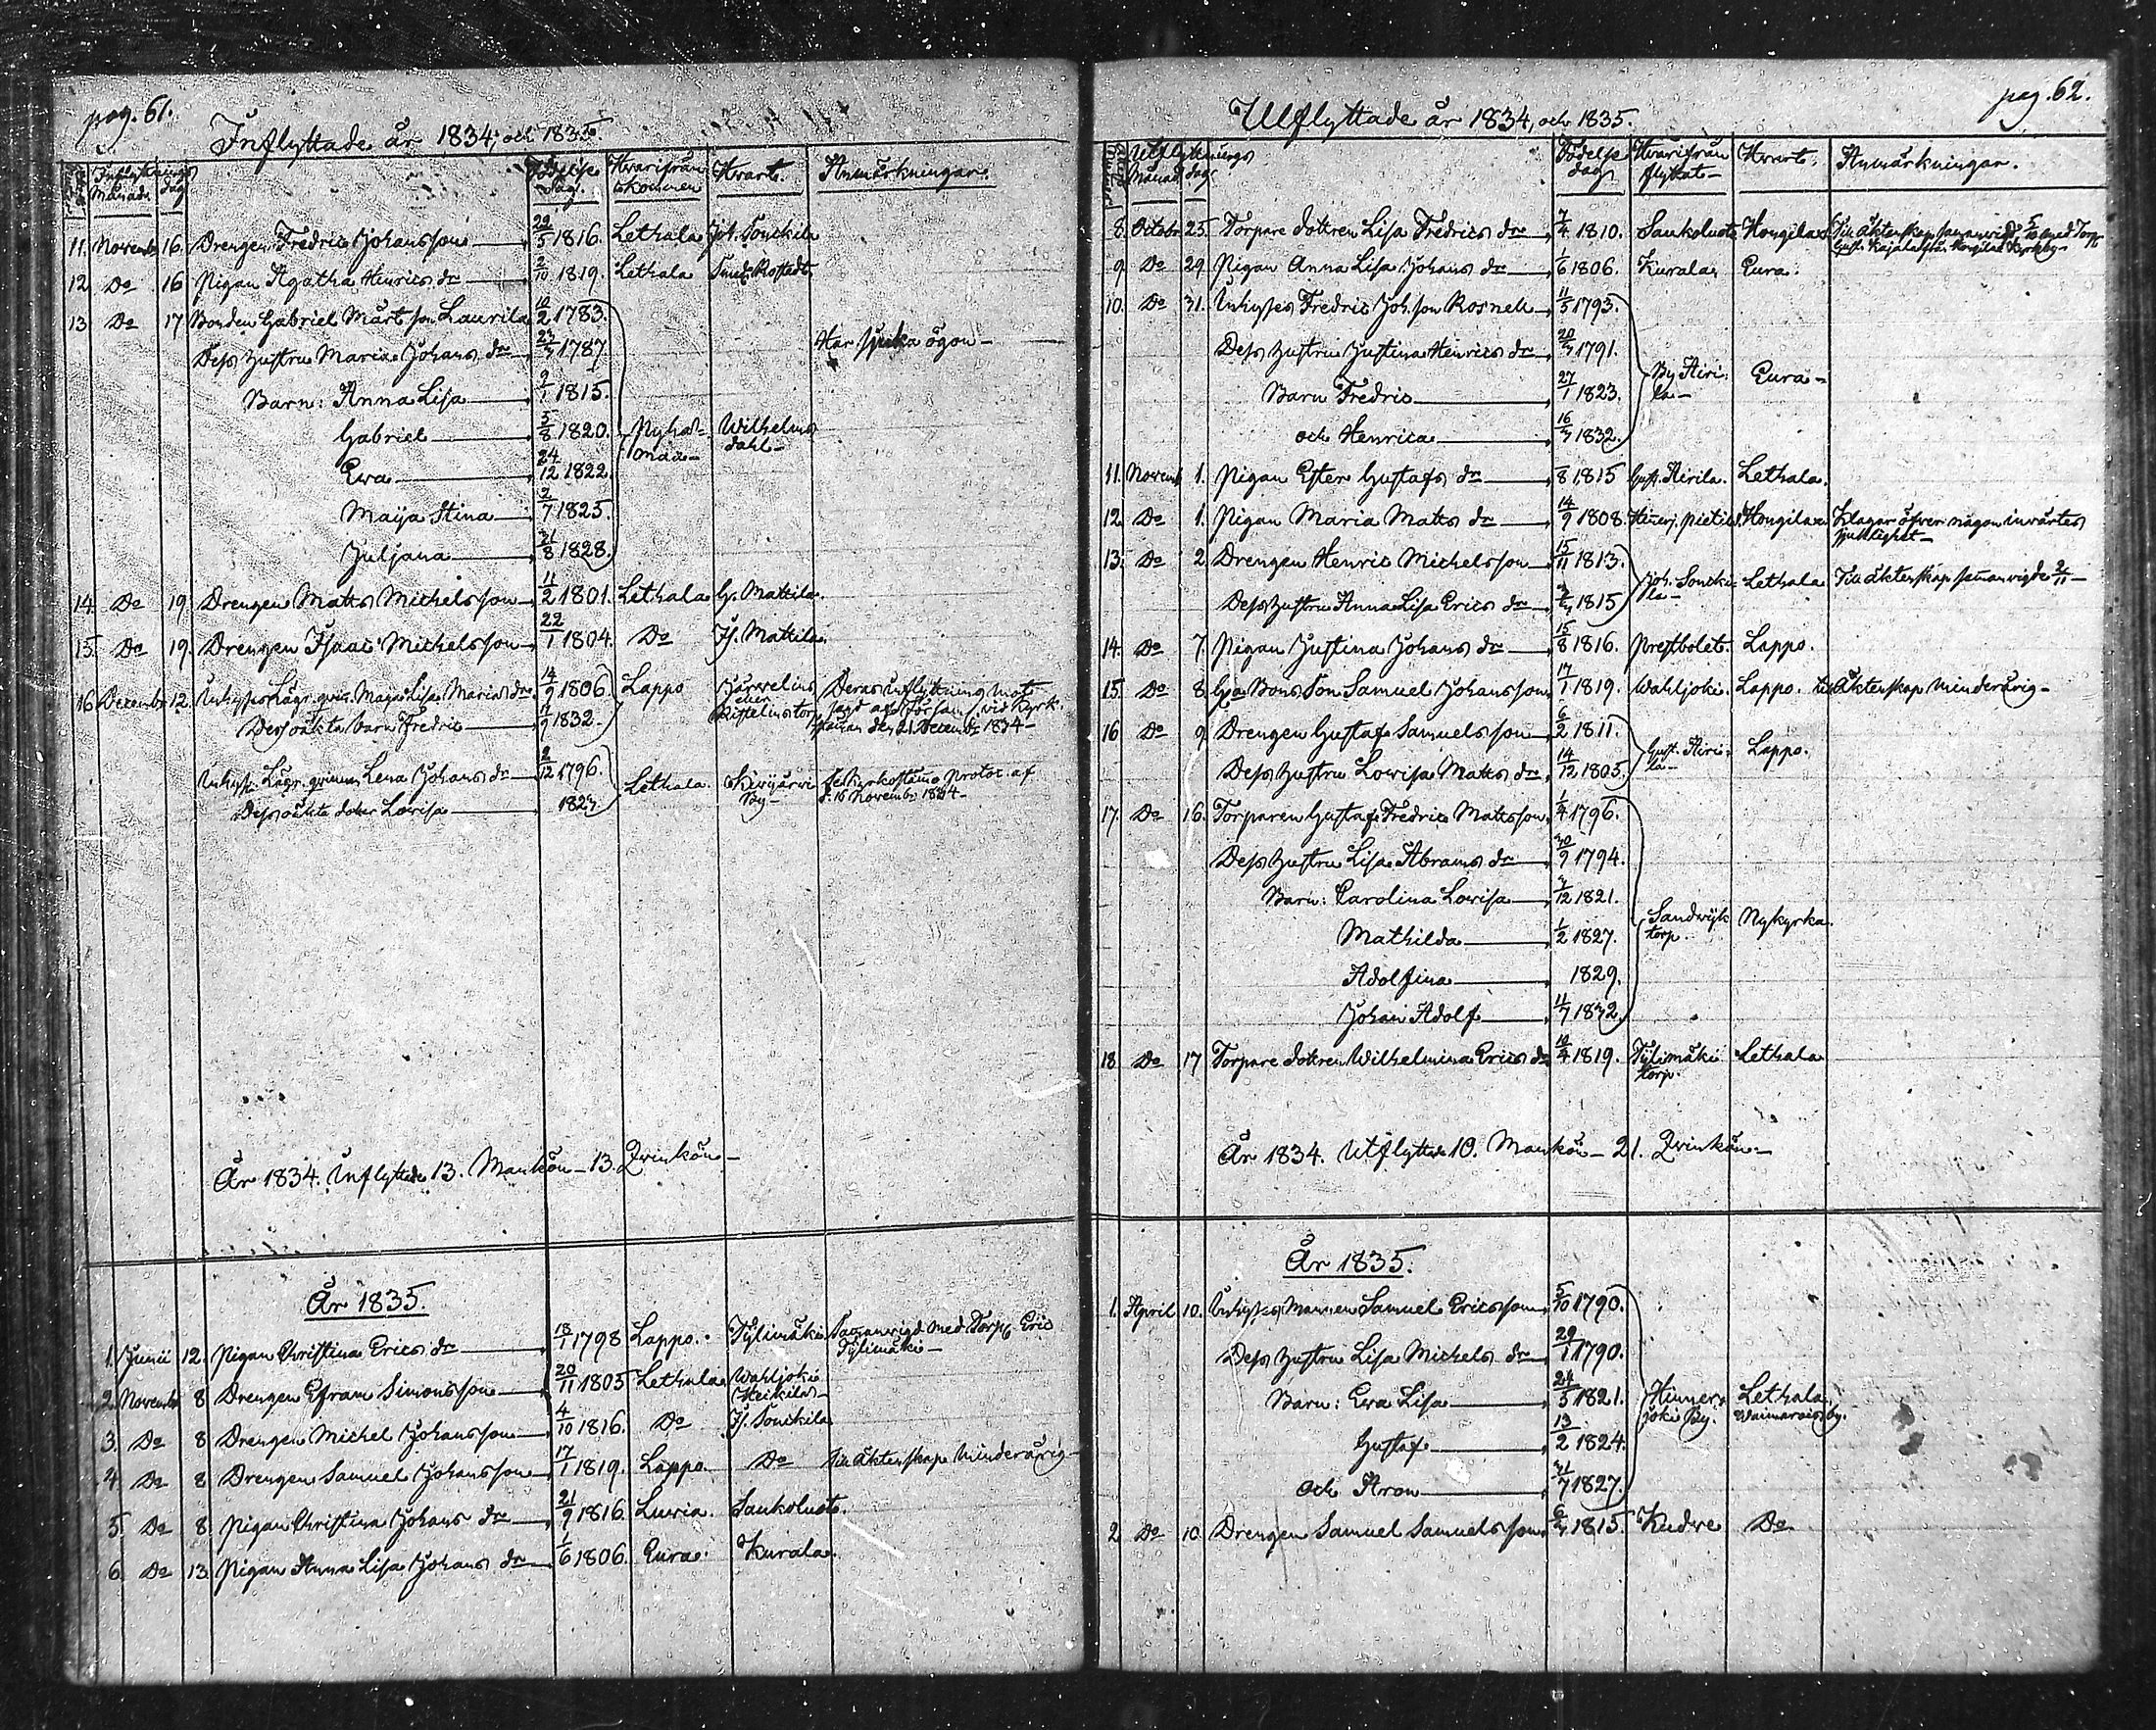 pag. 61.
Inflyttade år 1834, och 1835.
Inflyttnings Månad dag Födelse dag. Hvarifrån kommen Hvart. Anmärkningar.
11. Novemb 16. Drengen Fredric Johansson 29/5 1816. Lethala Joh. Sonckila
12 Do 16 Pigan Agatha Henrics dr 2/10 1819. Lethala
13 Do 17 Bonden Gabriel Mårt son Laurila 10/2 1783.
Dess hustru Maria Johans dr 1787. Har sjuka ögon
Barn: Anna Lisa 9/1 1815.
Gabriel 5/8 1820. Nyha- Wilhelms
maa dahl
Ewa 24/12 1822.
Maija Stina 2/7 1825.
Juljana 21/8 1828.
14. Do 19 Drengen Matts Michelsson 11/2 1801. Lethala G. Mattila.
15. Do 19. Drengen Isaac Michelsson 22/1 1804. Do Is. Mattila.
16 Decemb 12. Inhyses Lägr. qvin. Maja Lisa Maria dr 14/9 1806. Lappo
Dess oäkta barn Fredric 1832.
d. 21 Decemb 1834
Inhys. Lägr. qvinnan Lena Johans dr 2/12 1796. Lethala. Kiwijärwi Se Kyrkostäme Protoc. af
Dess oäkta dotter Lovisa By d. 16 Novemb 1834
År 1834. Inflyttade 13. Mankön – 13. Qvinkön
År 1835.
1. Junii 12. Pigan Christina Erics dr 18/1 1798 Lappo. Tylimäki Samanvigd med Torp. Eric
Tylimäki
2. Novemb 8 Drengen Efram Simonsson 20/11 1805 Lethala Wahljoki
Heikilä
3. Do 8 Drengen Michel Johansson 4/10 1816. Do Is. Sonckila
4 Do 8 Drengen Samuel Johansson 17/1 1819. Lappo. Do Till äktenskap Minderårig
5. Do 8 Pigan Christina Johans dr 21/9 1816. Luvia. Saukoluoto.
6. Do 13. Pigan Anna Lisa Johans dr 1/6 1806. Eura. Kurala.
pag. 62.
Utflyttade år 1834, och 1835.
Utflyttnings Månad dag Födelse dag Hvarifrån flyttat Hvart. Anmärkningar.
8. Octobr 25. Torpare dottren Lisa Fredrics dr 7/4 1810. Saukoluoto Hongilax
9 Do 29 Pigan Anna Lisa Johans dr 1/6 1806. Kurala Eura.
10. Do 31. Inhyses Fredric Joh. son Rosnell 11/5 1793.
Dess hustru Justina Henrics dr 1791.
Barn Fredric 27/1 1823. By Airi- Eura
och Henrica 1832. la
11. Novemb 1. Pigan Ester Gustafs dr 1815 Gust. Airila. Lethala.
12. Do 1. Pigan Maria Matts dr 14/9 1808. Hongilax Klagar öfver någon invärtes
sjuklighet
13. Do 2 Drengen Henric Michelsson 15/11 1813. Joh. Soncki- Lethala Till äktenskap samanvigde 2/11
Dess hustru Anna Lisa Erics dr 1815 la
14. Do 7 Pigan Justina Johans dr 15/8 1816. Prestbolet. Lappo.
15. Do 8 Bons Son Samuel Johansson 17/1 1819. Wahljoki. Lappo. till Äktenskap Minderårig
16 Do 9 Drengen Gustaf Samuelsson 6/2 1811. Gust. Airi- Lappo.
Dess hustru Lovisa Matts dr 14/12 1805. la
17. Do 16. Torparen Gustaf Fredric Mattsson 1/4 1796.
Dess hustru Lisa Abrams dr 30/9 1794.
Barn: Carolina Lovisa 1821. Sandwijk Nykyrka.
Mathilda 1/2 1827. torp
Adolfina 1829.
Johan Adolf 11/7 1832.
18 Do 17 Torpare dottren Wilhelmina Erics dr 10/4 1819. Tylimäki Lethala
torp.
År 1834. Utflyttade 10. Mankön – 21. Qvinkön
År 1835.
1. April 10. Inhyses Mannen Samuel Ericsson 5/10 1790.
Dess hustru Lisa Michels dr 29/1 1790.
Barn: Ewa Lisa 24/5 1821. Hinner- Lethala
Gustaf 13/2 1824. joki By.
och Aron 1827.
2 Do 10. Drengen Samuel Samuelsson 1815. Kudve Do